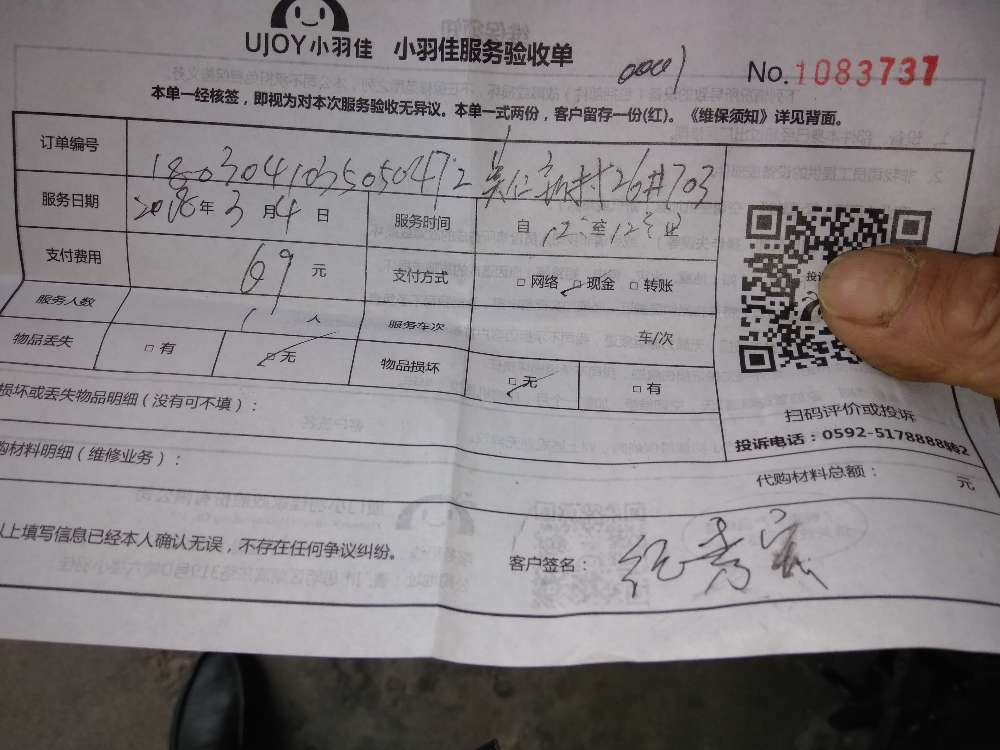 UJOY小羽佳 小羽佳服务验收单
0001 No.1083737
本单一经核签，即视为对本次服务验收无异议。本单一式两份，客户留存一份(红)。《维保须知》详见背面。
订单编号 1803041035050472 吴仁新村26#703
服务日期 2018年3月4日 服务时间 自12:至12:
支付费用 69元 支付方式 □网络 □现金 □转账
服务人数 1人 服务车次 车/次
物品丢失 □有 □无 物品损坏 □无 □有
损坏或丢失物品明细（没有可不填）：
扫码评价或投诉
投诉电话：0592-5178888转2
购材料明细（维修业务）：
代购材料总额： 元
以上填写信息已经本人确认无误，不存在任何争议纠纷。
客户签名：